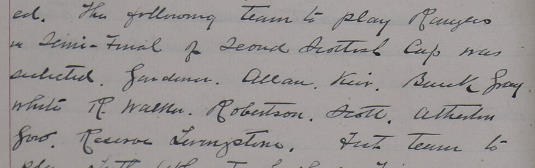 ed. The following team to play Rangers
in Semi-Final of Second Scottish Cup was
selected. Gardiner. Allan. Keir. Buick Gray
White R Walker. Robertson. Scott. Atherton
Gow. Reserve Livingstone. Fust team to